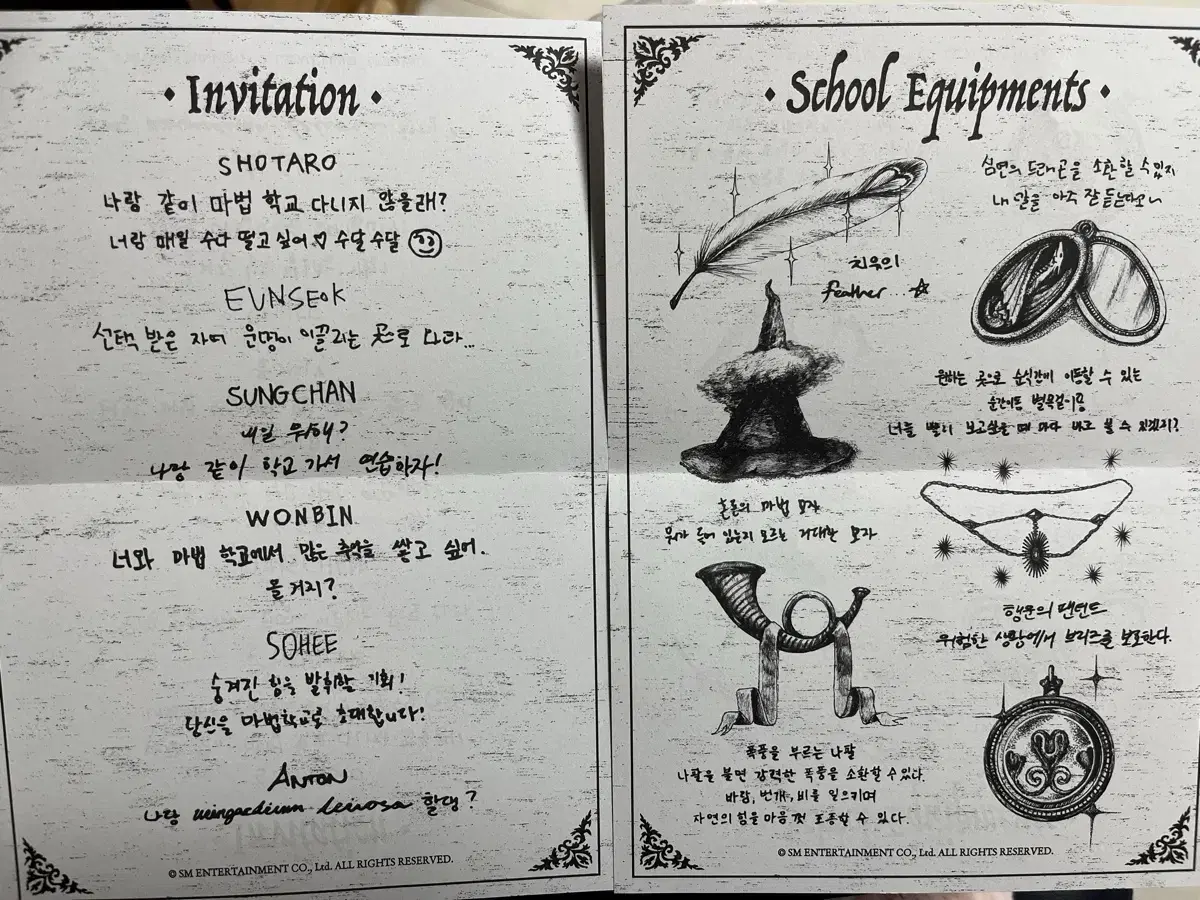 Invitation
SHOTARO
나랑 같이 마법 학교 다니지 않을래?
너랑 매일 수다 떨고 싶어♡ 수달수달
EUNSEOK
선택 받은 자여 운명이 이끌리는 곳으로 나와...
SUNGCHAN
내일 뭐해?
나랑 같이 학교 가서 연습하자!
WONBIN
너와 마법 학교에서 많은 추억을 쌓고 싶어.
올거지?
SOHEE
숨겨진 힘을 발휘할 기회!
당신을 마법학교로 초대합니다!
ANTON
나랑 wingardium leviosa 할댕?
© SM ENTERTAINMENT CO., Ltd. ALL RIGHTS RESERVED.
School Equipments
치유의
feather...☆
심연의 드래곤을 소환할 수 있지
내 말을 아주 잘 듣는다고~
혼돈의 마법 모자
뭐가 들어 있는지 모르는 거대한 모자
원하는 곳으로 순식간에 이동할 수 있는
순간이동 별목걸이용
너를 빨리 보고싶을 때 마다 바로 볼 수 있겠지?
폭풍을 부르는 나팔
나팔을 불면 강력한 폭풍을 소환할 수 있다.
바람, 번개, 비를 일으키며
자연의 힘을 마음껏 조종할 수 있다.
행운의 팬던트
위험한 상황에서 브리즈를 보호한다.
© SM ENTERTAINMENT CO., Ltd. ALL RIGHTS RESERVED.